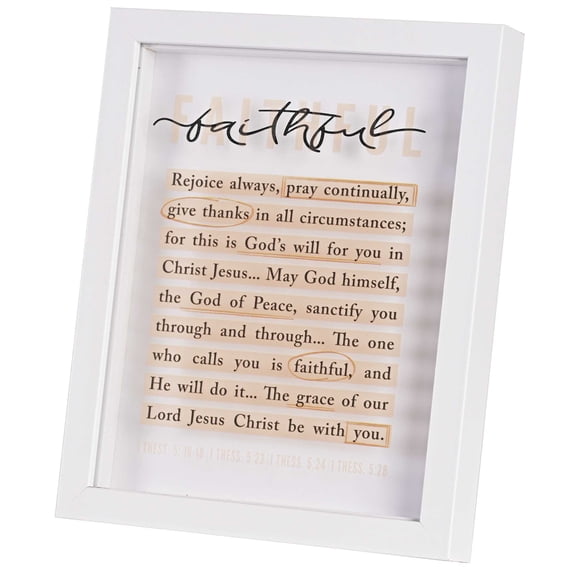 FAITHFUL
faithful
Rejoice always, pray continually,
give thanks in all circumstances;
for this is God's will for you in
Christ Jesus... May God himself,
the God of Peace, sanctify you
through and through... The one
who calls you is faithful, and
He will do it... The grace of our
Lord Jesus Christ be with you.
THESS. 5:16-18 | 1 THESS. 5:23 | 1 THESS. 5:24 | 1 THESS. 5:28